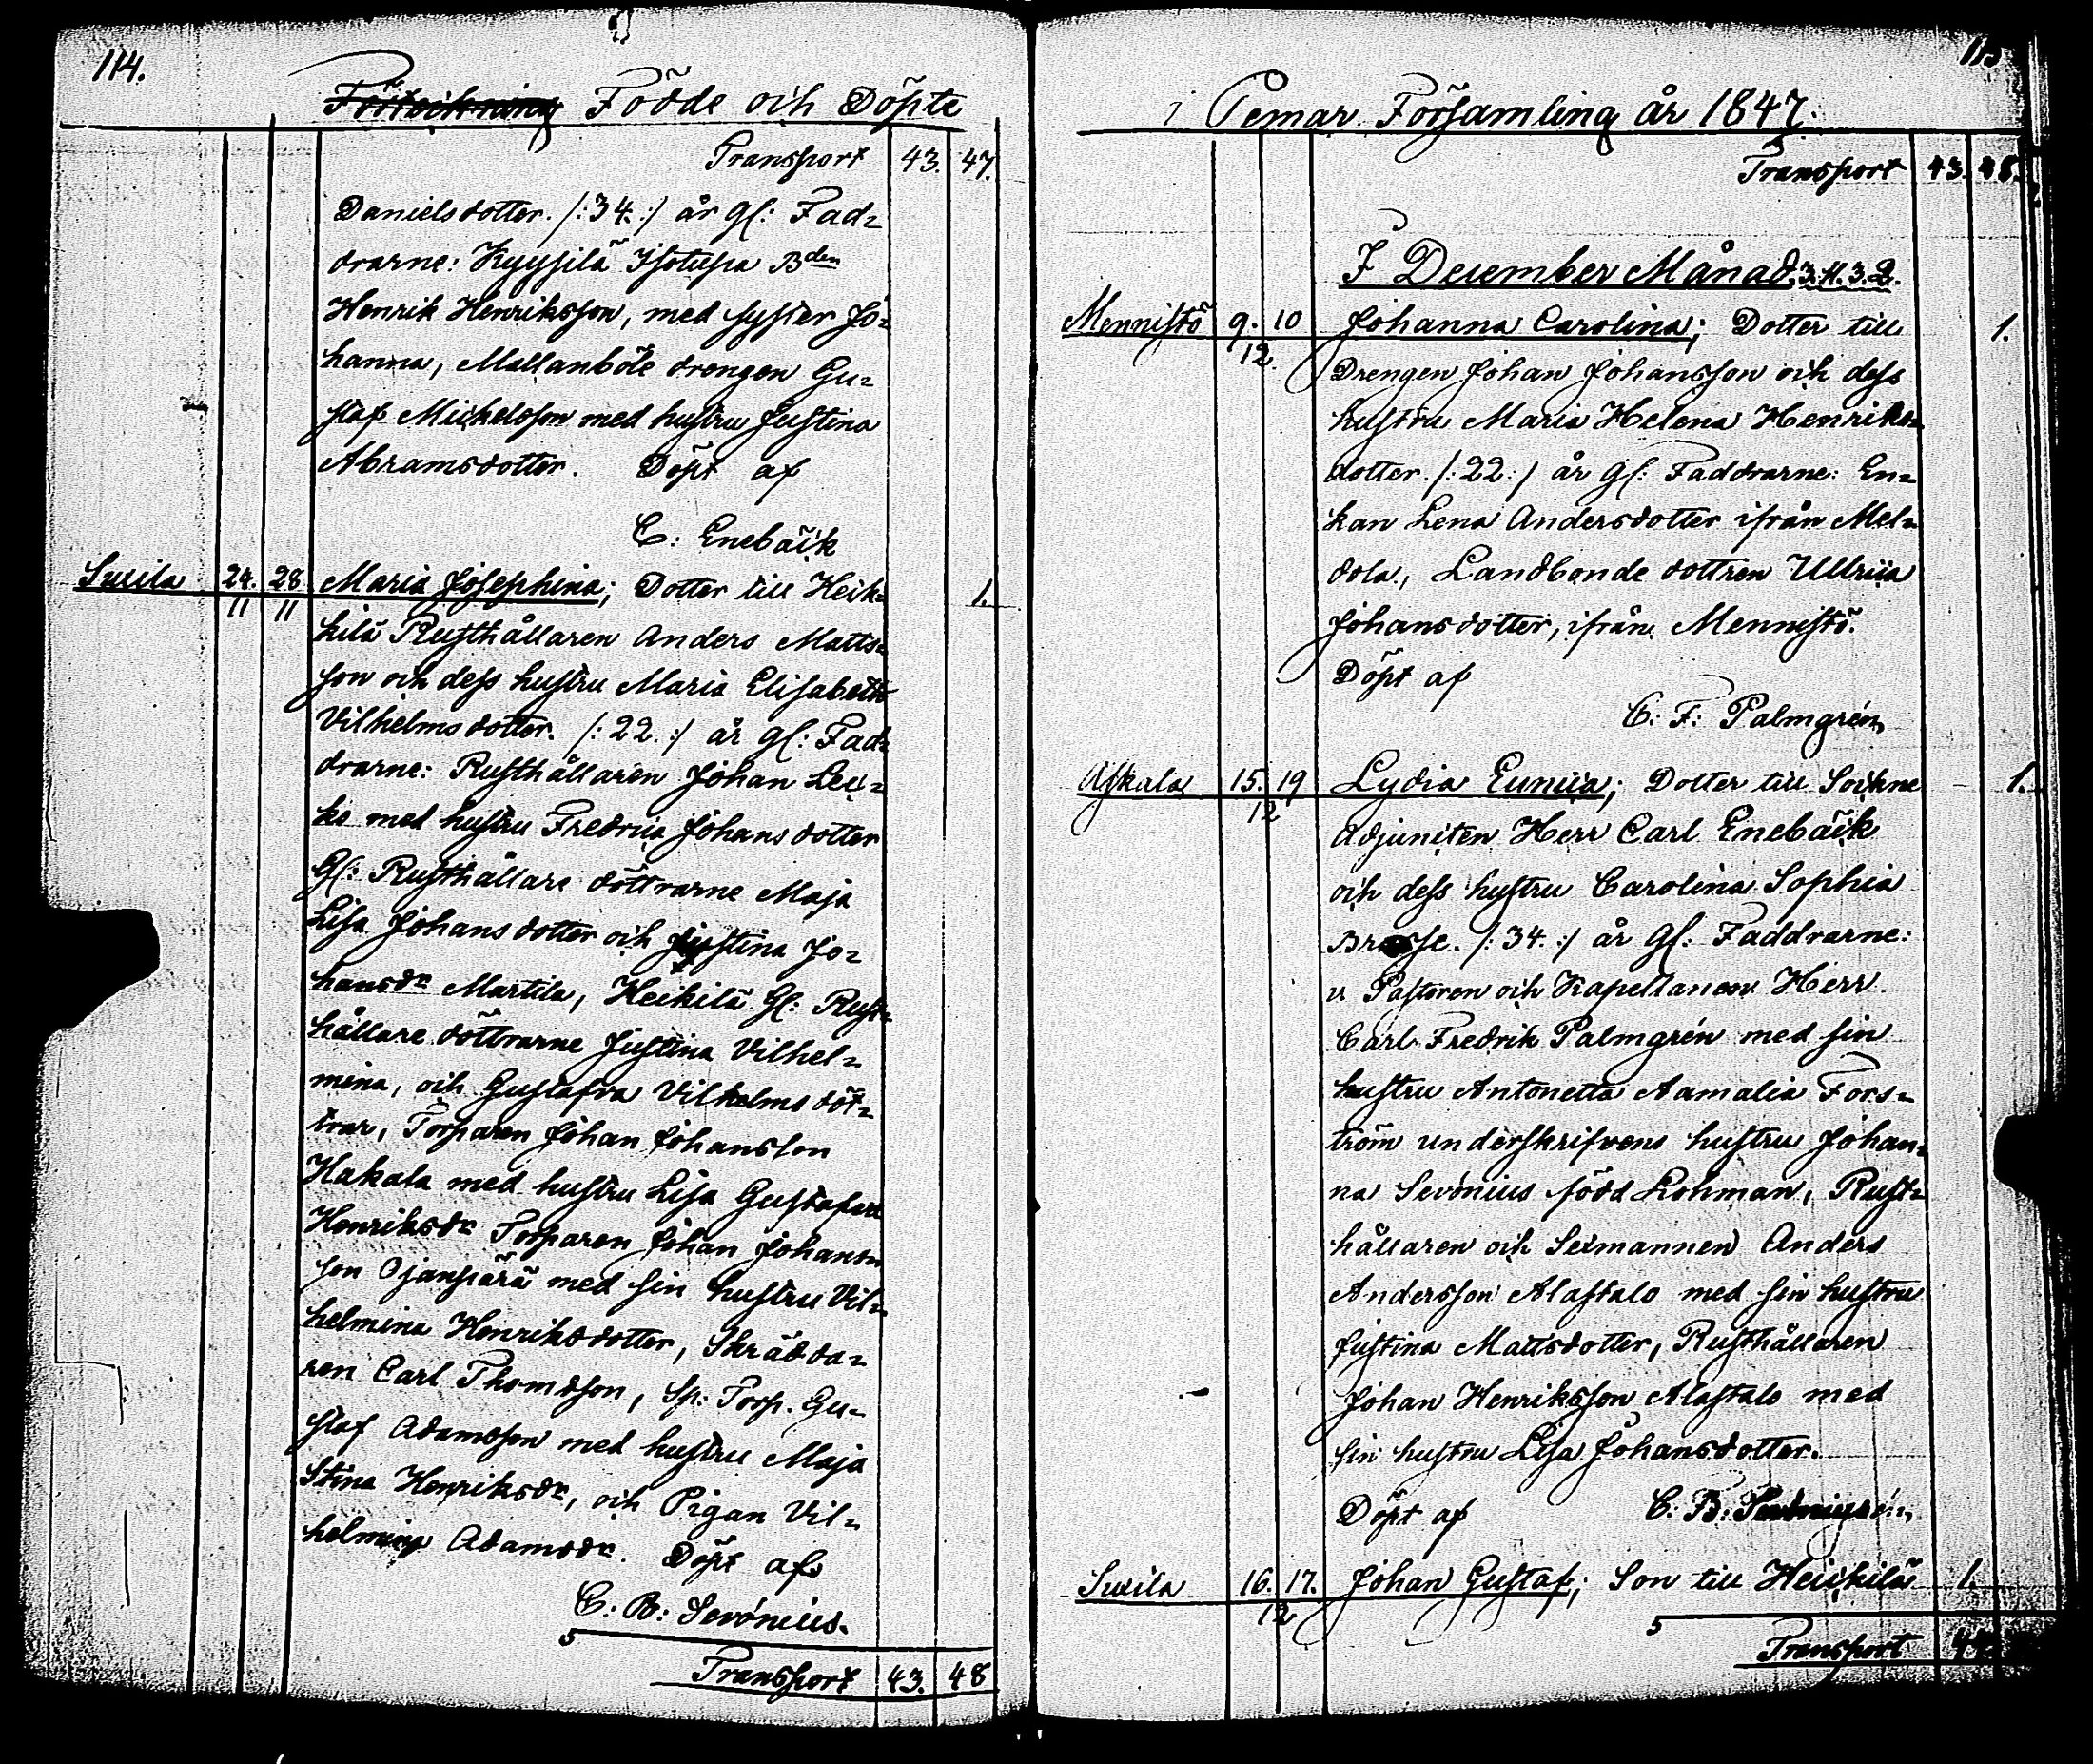 114.
Förteckning Födde och Döpte
Transport 43. 47.
Danielsdotter. /:34.:/ år gl: Fad=
drarne: Kyysilä Isotupa Bden
Henrik Henriksson, med syster Jo=
hanna, Mallanböle drengen Gu=
staf Mickelsson med hustru Justina
Abramsdotter. Döpt af
C: Enebäck
Sucila 24. 28 Maria Josephina; Dotter till Heik= 1.
11 11
kilä Rusthållaren Anders Matts=
son och dess hustru Maria Elisabeth
Vilhelmsdotter. /:22.:/ år gl: Fad=
drarne: Rusthållaren Johan Lec=
ke med hustru Fredrica Johansdotter
Gl: Rusthållare döttrarne Maja
Lisa Johansdotter och Justina Jo=
hansdr Martila, Heikilä Gl: Rust=
hållare döttrarne Justina Vilhel=
mina, och Gustafva Vilhelmsdöt=
trar, Torparen Johan Johansson
Hakala med hustru Lisa Gustafva
Henriksdr Torparen Johan Johans
son Ojanperä med sin hustru Vil=
helmina Henriksdotter, Skrädda=
ren Carl Thomsson, Sp: Torp. Gu=
staf Adamsson med hustru Maja
Stina Henriksdr, och Pigan Vil=
helmina Adamsdr. Döpt af
C: B: Sevónius.
5
Transport 43. 48
i Pemar Församling år 1847.
Transport 43. 48.
I December Månad. 3. 4. 3. 2.
Mennistö 9. 10 Johanna Carolina; Dotter till 1.
12.
Drengen Johan Johansson och dess
hustru Maria Helena Henriks=
dotter. /:22:/ år gl: Faddrarne: En=
kan Lena Andersdotter ifrån Mel=
dola, Landbonde dottren Ullrica
Johansdotter, ifrån Mennistö.
Döpt af
C: F: Palmgrén
Askala 15. 19 Lydia Eunica; Dotter till Sockne 1.
12
Adjuncten Herr Carl Enebäck
och dess hustru Carolina Sophia
/:34.:/ år gl: Faddrarne:
v Pastoren och Kapellanen Herr
Carl Fredrik Palmgrén med sin
hustru Antonetta Aamalia Fors=
tröm underskrifvens hustru Johan=
na Sevónius född Lohman, Rust=
hållaren och Sexmannen Anders
Andersson Alastalo med sin hustru
Justina Mattsdotter, Rusthållaren
Johan Henriksson Alastalo med
sin hustru Lisa Johansdotter.
Döpt af C: B:
Sucila 16. 17. Johan Gustaf; Son till Heickilä 1.
12
5
Transport 44.